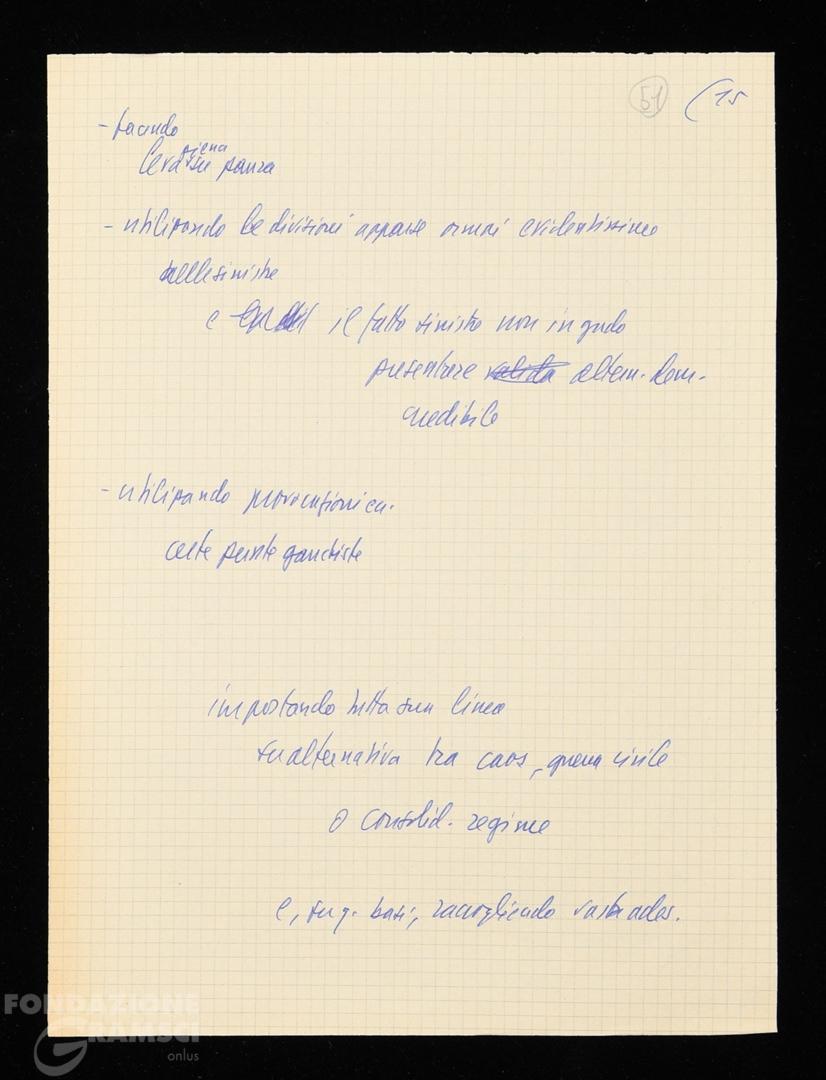 51 (15
- facendo
piena
leva su paura
- utilizzando le divisioni apparse ormai evidentissime
nelle sinistre
e il fatto sinistre non in grado
presentare valida altern. dem.
credibile
- utilizzando provocazioni ca.
certe punte gauchiste
impostando tutta sua linea
su alternativa tra caos, guerra civile
o consolid. regime
e, su q. basi, raccogliendo vaste ades.
FONDAZIONE
GRAMSCI
onlus